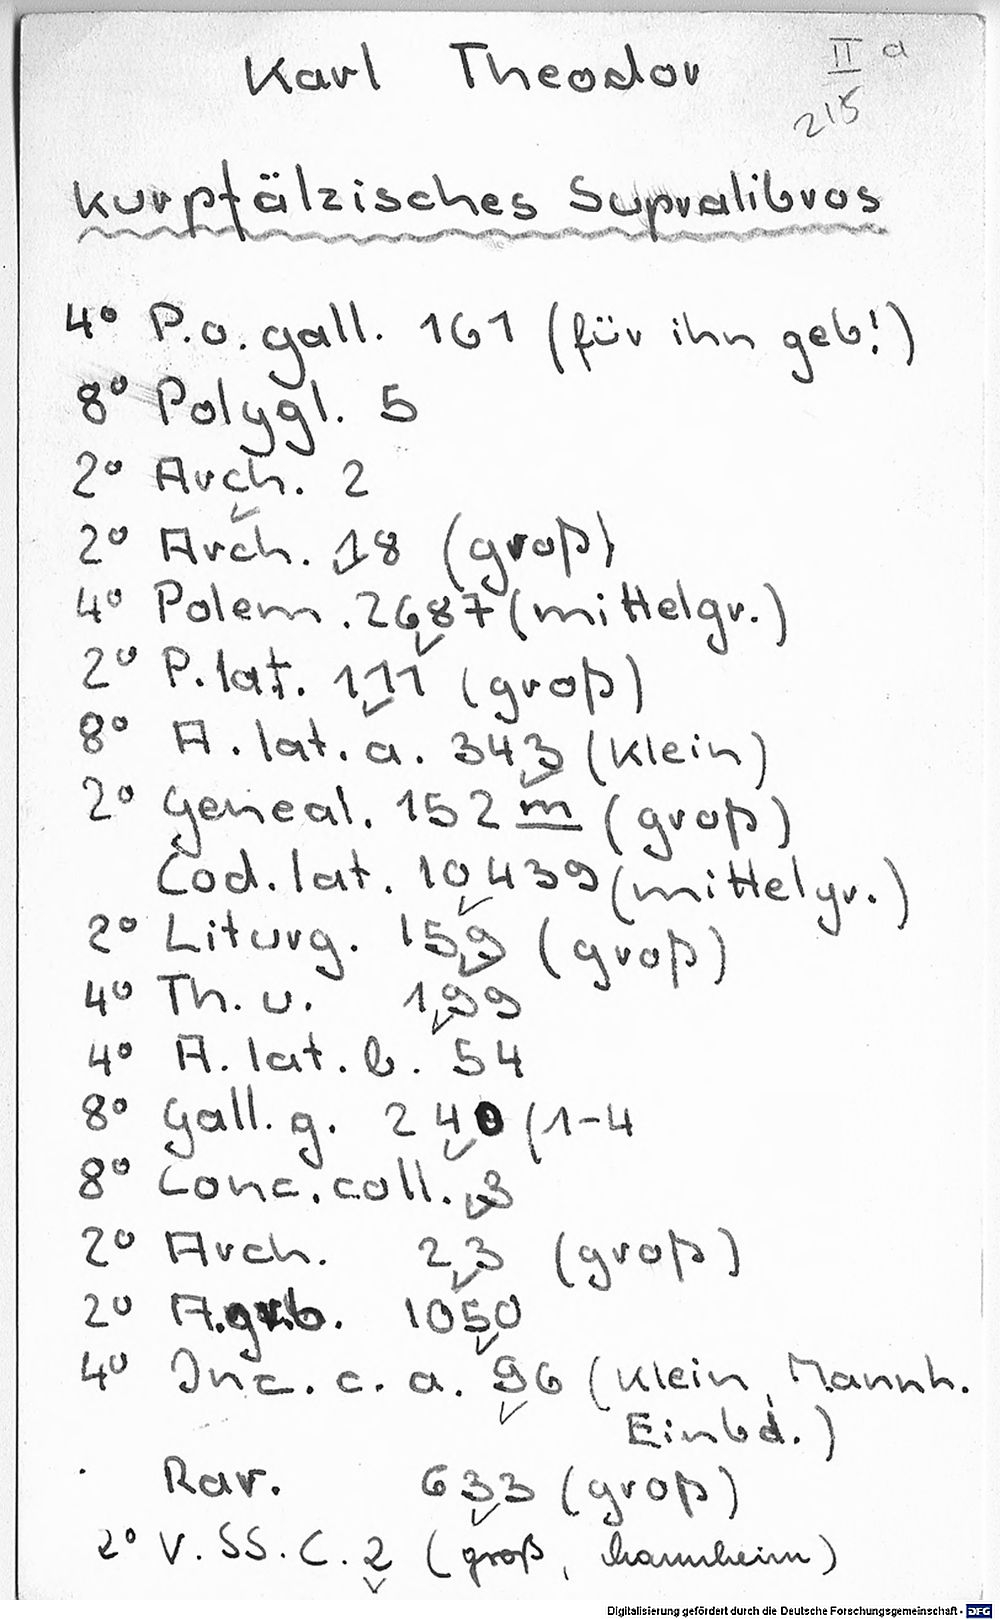 Karl Theodor
II a
215
Kurpfälzisches Supralibros
4° P.o. gall. 161 (für ihn geb!)
8° Polygl. 5
2° Arch. 2
2° Arch. 18 (groß)
4° Polem. 2687 (mittelgr.)
2° P. lat. 111 (groß)
8° A. lat. a. 343 (Klein)
2° Geneal. 152 m (groß)
Cod. lat. 10439 (mittelgr.)
2° Liturg. 159 (groß)
4° Th. u. 199
4° A. lat. b. 54
8° Gall. g. 240 (1-4
8° Conc. coll. 3
2° Arch. 23 (groß)
2° A.gr.b. 1050
4° Inc. c. a. 96 (Klein, Mannh.
Einbd.)
Rar. 633 (groß)
2° V. SS. C. 2 (groß, Mannheim)
Digitalisierung gefördert durch die Deutsche Forschungsgemeinschaft - DFG